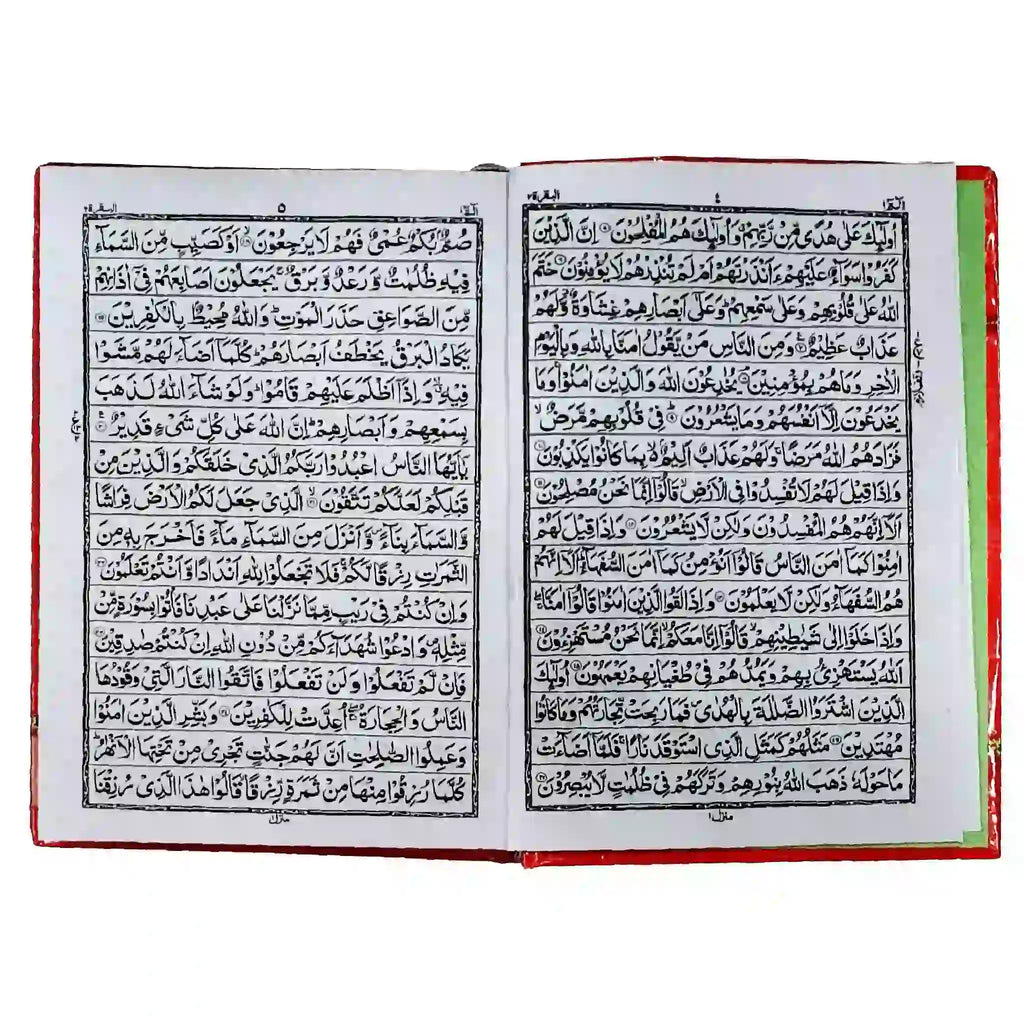 الٓمّٓ ١
٤
البقرة ٢
اُولٰٓئِكَ عَلٰى هُدًى مِّنْ رَّبِّهِمْ وَاُولٰٓئِكَ هُمُ الْمُفْلِحُوْنَ ۝٥ اِنَّ الَّذِيْنَ
كَفَرُوْا سَوَآءٌ عَلَيْهِمْ ءَاَنْذَرْتَهُمْ اَمْ لَمْ تُنْذِرْهُمْ لَا يُؤْمِنُوْنَ ۝٦ خَتَمَ
اللّٰهُ عَلٰى قُلُوْبِهِمْ وَعَلٰى سَمْعِهِمْ ؕ وَعَلٰٓى اَبْصَارِهِمْ غِشَاوَةٌ ؗ وَّلَهُمْ
عَذَابٌ عَظِيْمٌ ۝٧ وَمِنَ النَّاسِ مَنْ يَّقُوْلُ اٰمَنَّا بِاللّٰهِ وَبِالْيَوْمِ
الْاٰخِرِ وَمَا هُمْ بِمُؤْمِنِيْنَ ۝٨ يُخٰدِعُوْنَ اللّٰهَ وَالَّذِيْنَ اٰمَنُوْا ۚ وَمَا
يَخْدَعُوْنَ اِلَّاۤ اَنْفُسَهُمْ وَمَا يَشْعُرُوْنَ ۝٩ فِيْ قُلُوْبِهِمْ مَّرَضٌ ۙ
فَزَادَهُمُ اللّٰهُ مَرَضًا ۚ وَلَهُمْ عَذَابٌ اَلِيْمٌ ۢ ۙ بِمَا كَانُوْا يَكْذِبُوْنَ ۝١٠
وَاِذَا قِيْلَ لَهُمْ لَا تُفْسِدُوْا فِي الْاَرْضِ ۙ قَالُوْۤا اِنَّمَا نَحْنُ مُصْلِحُوْنَ ۝١١
اَلَاۤ اِنَّهُمْ هُمُ الْمُفْسِدُوْنَ وَلٰكِنْ لَّا يَشْعُرُوْنَ ۝١٢ وَاِذَا قِيْلَ لَهُمْ
اٰمِنُوْا كَمَاۤ اٰمَنَ النَّاسُ قَالُوْۤا اَنُؤْمِنُ كَمَاۤ اٰمَنَ السُّفَهَآءُ ؕ اَلَاۤ اِنَّهُمْ
هُمُ السُّفَهَآءُ وَلٰكِنْ لَّا يَعْلَمُوْنَ ۝١٣ وَاِذَا لَقُوا الَّذِيْنَ اٰمَنُوْا قَالُوْۤا اٰمَنَّا ۖۚ
وَاِذَا خَلَوْا اِلٰى شَيٰطِيْنِهِمْ ۙ قَالُوْۤا اِنَّا مَعَكُمْ ۙ اِنَّمَا نَحْنُ مُسْتَهْزِءُوْنَ ۝١٤
اَللّٰهُ يَسْتَهْزِئُ بِهِمْ وَيَمُدُّهُمْ فِيْ طُغْيَانِهِمْ يَعْمَهُوْنَ ۝١٥ اُولٰٓئِكَ
الَّذِيْنَ اشْتَرَوُا الضَّلٰلَةَ بِالْهُدٰى ۪ فَمَا رَبِحَتْ تِّجَارَتُهُمْ وَمَا كَانُوْا
مُهْتَدِيْنَ ۝١٦ مَثَلُهُمْ كَمَثَلِ الَّذِي اسْتَوْقَدَ نَارًا ۚ فَلَمَّاۤ اَضَآءَتْ
مَا حَوْلَهٗ ذَهَبَ اللّٰهُ بِنُوْرِهِمْ وَتَرَكَهُمْ فِيْ ظُلُمٰتٍ لَّا يُبْصِرُوْنَ ۝١٧
منزل ١
الٓمّٓ ١
٥
البقرة ٢
صُمٌّۢ بُكْمٌ عُمْيٌ فَهُمْ لَا يَرْجِعُوْنَ ۝١٨ اَوْ كَصَيِّبٍ مِّنَ السَّمَآءِ
فِيْهِ ظُلُمٰتٌ وَّرَعْدٌ وَّبَرْقٌ ۚ يَجْعَلُوْنَ اَصَابِعَهُمْ فِيْۤ اٰذَانِهِمْ
مِّنَ الصَّوَاعِقِ حَذَرَ الْمَوْتِ ؕ وَاللّٰهُ مُحِيْطٌۢ بِالْكٰفِرِيْنَ ۝١٩
يَكَادُ الْبَرْقُ يَخْطَفُ اَبْصَارَهُمْ ؕ كُلَّمَاۤ اَضَآءَ لَهُمْ مَّشَوْا
فِيْهِ ۙ وَاِذَاۤ اَظْلَمَ عَلَيْهِمْ قَامُوْا ؕ وَلَوْ شَآءَ اللّٰهُ لَذَهَبَ
بِسَمْعِهِمْ وَاَبْصَارِهِمْ ؕ اِنَّ اللّٰهَ عَلٰى كُلِّ شَيْءٍ قَدِيْرٌ ۝٢٠
يٰۤاَيُّهَا النَّاسُ اعْبُدُوْا رَبَّكُمُ الَّذِيْ خَلَقَكُمْ وَالَّذِيْنَ مِنْ
قَبْلِكُمْ لَعَلَّكُمْ تَتَّقُوْنَ ۝٢١ الَّذِيْ جَعَلَ لَكُمُ الْاَرْضَ فِرَاشًا
وَّالسَّمَآءَ بِنَآءً ۪ وَّاَنْزَلَ مِنَ السَّمَآءِ مَآءً فَاَخْرَجَ بِهٖ مِنَ
الثَّمَرٰتِ رِزْقًا لَّكُمْ ۚ فَلَا تَجْعَلُوْا لِلّٰهِ اَنْدَادًا وَّاَنْتُمْ تَعْلَمُوْنَ ۝٢٢
وَاِنْ كُنْتُمْ فِيْ رَيْبٍ مِّمَّا نَزَّلْنَا عَلٰى عَبْدِنَا فَاْتُوْا بِسُوْرَةٍ مِّنْ
مِّثْلِهٖ ۪ وَادْعُوْا شُهَدَآءَكُمْ مِّنْ دُوْنِ اللّٰهِ اِنْ كُنْتُمْ صٰدِقِيْنَ ۝٢٣
فَاِنْ لَّمْ تَفْعَلُوْا وَلَنْ تَفْعَلُوْا فَاتَّقُوا النَّارَ الَّتِيْ وَقُوْدُهَا
النَّاسُ وَالْحِجَارَةُ ۖۚ اُعِدَّتْ لِلْكٰفِرِيْنَ ۝٢٤ وَبَشِّرِ الَّذِيْنَ اٰمَنُوْا
وَعَمِلُوا الصّٰلِحٰتِ اَنَّ لَهُمْ جَنّٰتٍ تَجْرِيْ مِنْ تَحْتِهَا الْاَنْهٰرُ ؕ
كُلَّمَا رُزِقُوْا مِنْهَا مِنْ ثَمَرَةٍ رِّزْقًا ۙ قَالُوْا هٰذَا الَّذِيْ رُزِقْنَا
منزل ١